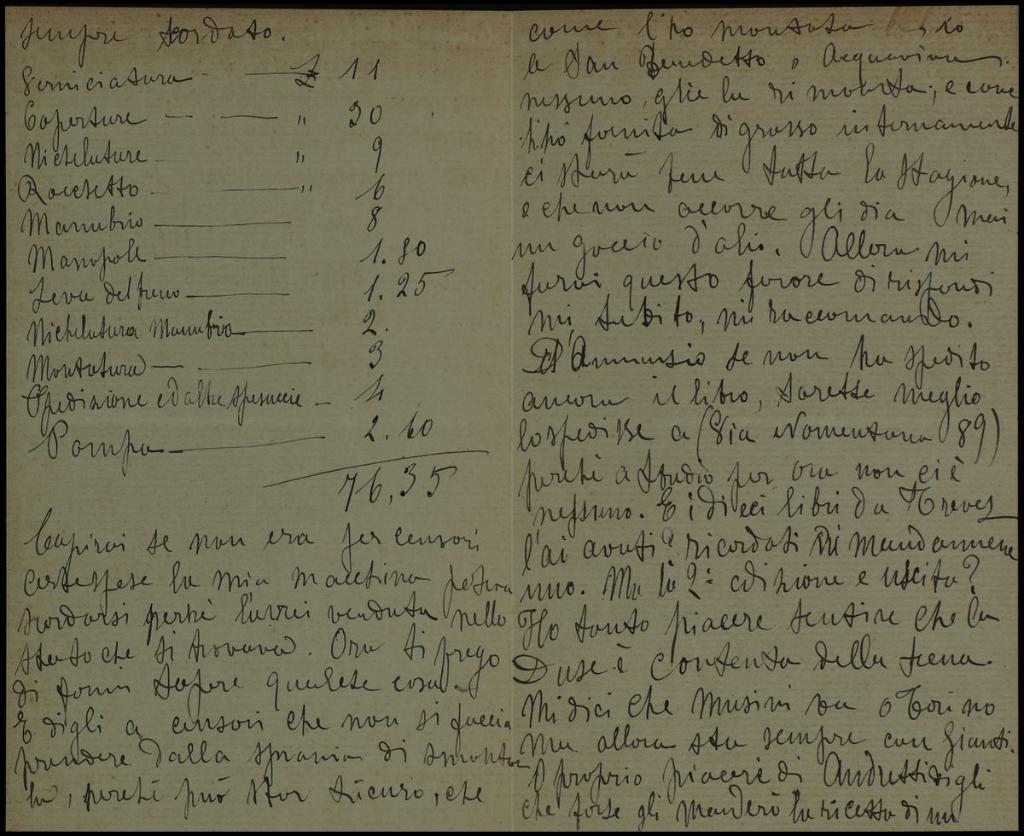 sempre scordato.
Verniciatura — £ 11
Coperture — — " 20
Nichelature — " 9
Rocchetto — " 6
Manubrio — 8
Manopole — 1.80
Leva del freno — 1.25
Nichelatura Manubrio — 2.
Montatura — 3
Spedizione ed altre spesuccie — 4
Pompa — 2.60
76,35
Capirai se non era per censori
certe spese la mia macchina poteva
scordarsi perchè l'avrei venduta nello
stato che si trovava. Ora ti prego
di farmi sapere qualche cosa.
E digli a censori che non si faccia
prendere dalla smania di smontar
la, perchè può star sicuro, che
come l'ho montata io
a San Benedetto, o Acquaviva
nessuno, glie la rimonta; e come
l'ho fornita di grasso internamente
ci starà bene tutta la stagione,
e che non occorre gli dia mai
un goccio d'olio. Allora mi
farai questo favore di rispondi
mi, subito, mi raccomando.
D'Annunzio se non ha spedito
ancora il libro, sarebbe meglio
lo spedisse a (Via Nomentana 89)
perchè a studio per ora non ci è
nessuno. E i dieci libri da Treves
l'ai avuti? ricordati di mandarmene
uno. Ma la 2ª edizione e uscita?
Ho tanto piacere sentire che la
Duse è contenta della scena.
Mi dici che Musini va a Torino
ma allora sta sempre con
proprio piacere di digli
che forse gli manderò la ricetta di un